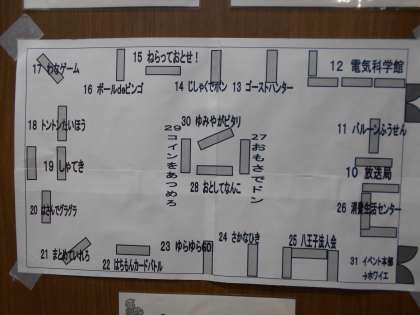 15 ねらっておとせ！
17 わなゲーム
16 ボールdeビンゴ
14 じしゃくでポン
13 ゴーストハンター
12 電気科学館
18 トントンたいほう
30 ゆみやがピタリ
29 コインをあつめろ
27 おもさでドン
11 バルーンふうせん
19 しゃてき
28 おとしてなんこ
10 放送局
20 はさんでグラグラ
26 消費生活センター
21 まとめていれろ
22 はちもんカードバトル
23 ゆらゆら60
24 さかなひき
25 八王子法人会
31 イベント本部
→ホワイエ